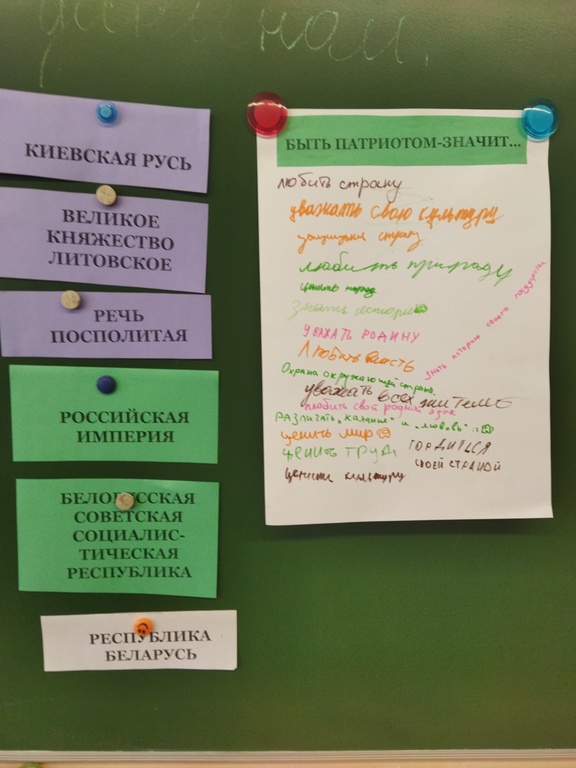 нам.
КИЕВСКАЯ РУСЬ
ВЕЛИКОЕ
КНЯЖЕСТВО
ЛИТОВСКОЕ
РЕЧЬ
ПОСПОЛИТАЯ
РОССИЙСКАЯ
ИМПЕРИЯ
БЕЛОРУССКАЯ
СОВЕТСКАЯ
СОЦИАЛИС-
ТИЧЕСКАЯ
РЕСПУБЛИКА
РЕСПУБЛИКА
БЕЛАРУСЬ
БЫТЬ ПАТРИОТОМ-ЗНАЧИТ...
любить страну
уважать свою культуру
страну
любить природу
ценить народ
знать историю
УВАЖАТЬ РОДИНУ
Любить власть
знать историю своего государства
Охрана окружающей
уважать всех жителей
любить свой родной язык
РАЗЛИЧАТЬ „казанье" и „любовь"
ценить мир
ЦЕНИТЬ ТРУД
ГОРДИТЬСЯ
СВОЕЙ СТРАНОЙ
ценить культуру